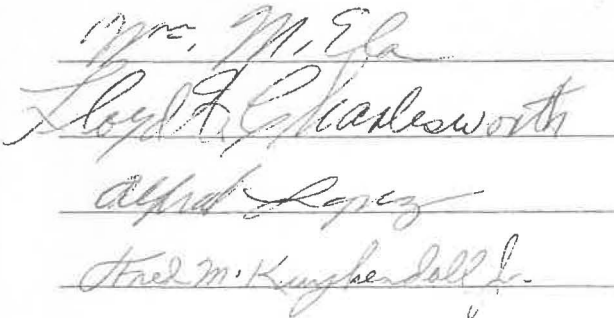 Wm. M. Ela
Lloyd A. Charlesworth
Alfred Lopez
Fred M. Kuykendall Jr.